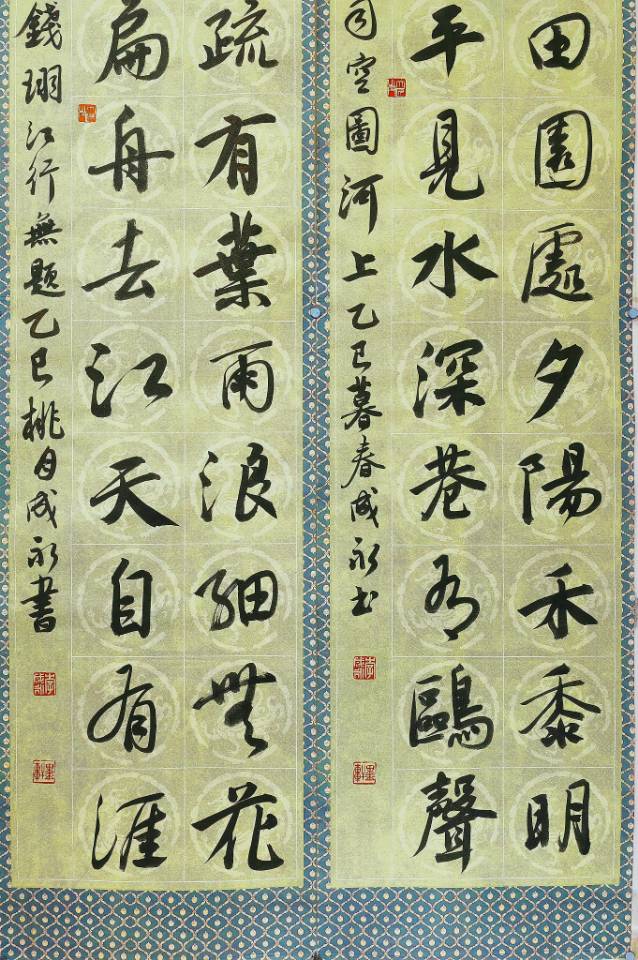 田園處夕陽禾黍明
平見水深巷有鷗聲
司空圖河上乙巳暮春成永书
疏有葉雨浪細無花
扁舟去江天自有涯
錢珝江行無題乙巳桃月成永書